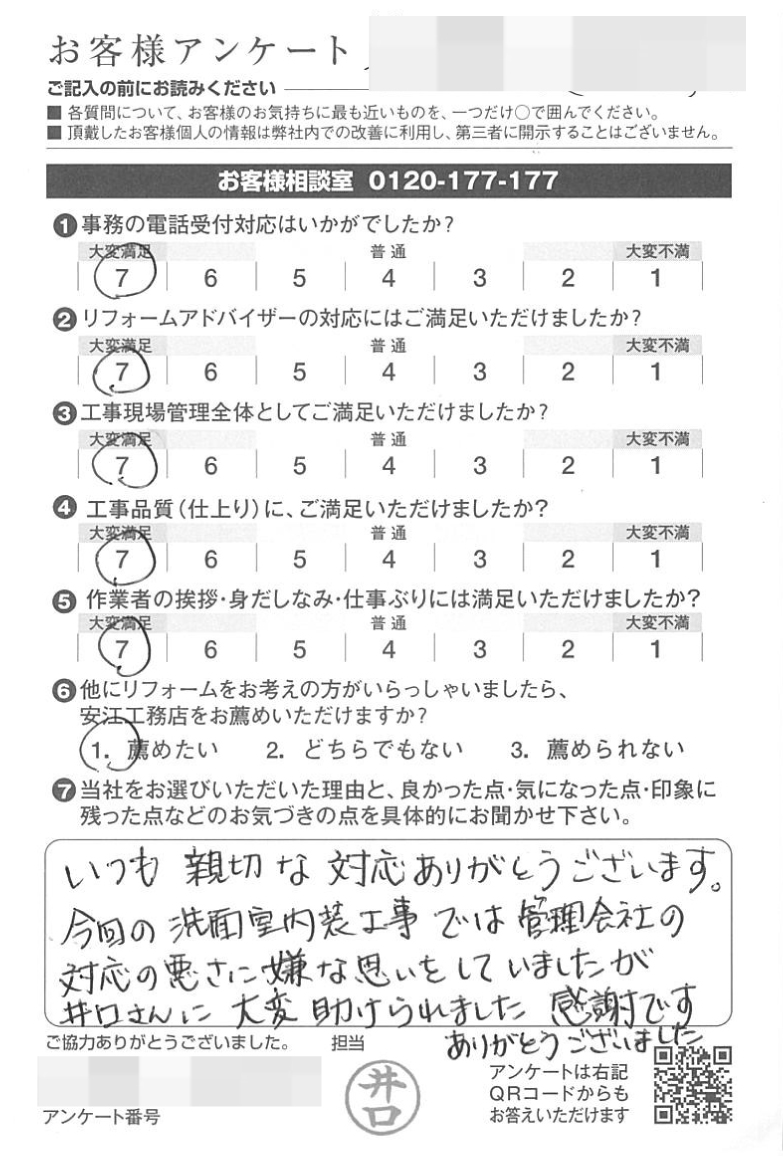 お客様アンケート
ご記入の前にお読みください
■ 各質問について、お客様のお気持ちに最も近いものを、一つだけ○で囲んでください。
■ 頂戴したお客様個人の情報は弊社内での改善に利用し、第三者に開示することはございません。
お客様相談室 0120-177-177
❶事務の電話受付対応はいかがでしたか?
大変満足 普通 大変不満
7 6 5 4 3 2 1
❷リフォームアドバイザーの対応にはご満足いただけましたか?
大変満足 普通 大変不満
7 6 5 4 3 2 1
❸工事現場管理全体としてご満足いただけましたか?
大変満足 普通 大変不満
7 6 5 4 3 2 1
❹工事品質(仕上り)に、ご満足いただけましたか?
大変満足 普通 大変不満
7 6 5 4 3 2 1
❺作業者の挨拶・身だしなみ・仕事ぶりには満足いただけましたか?
大変満足 普通 大変不満
7 6 5 4 3 2 1
❻他にリフォームをお考えの方がいらっしゃいましたら、
安江工務店をお薦めいただけますか?
1. 薦めたい 2. どちらでもない 3. 薦められない
❼当社をお選びいただいた理由と、良かった点・気になった点・印象に
残った点などのお気づきの点を具体的にお聞かせ下さい。
いつも 親切な 対応ありがとうございます。
今回の 洗面室内装工事 では 管理会社の
対応の悪さに嫌な思いをしていましたが
井口さんに 大変 助けられました 感謝です
ありがとうございました
ご協力ありがとうございました。 担当
井口
アンケート番号
アンケートは右記
QRコードからも
お答えいただけます